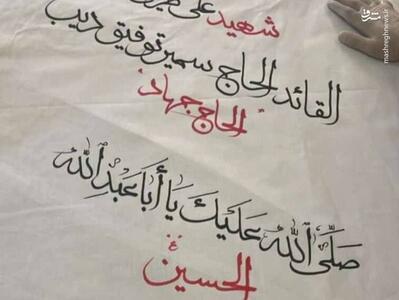 شهيد على
القائد الحاج سمير توفيق ديب
الحاج جهاد
صَلَّى ٱللهُ عَلَيْكَ يَا أَبَا عَبْدِ ٱللهِ
الحسين
مشرق
mashreghnews.ir